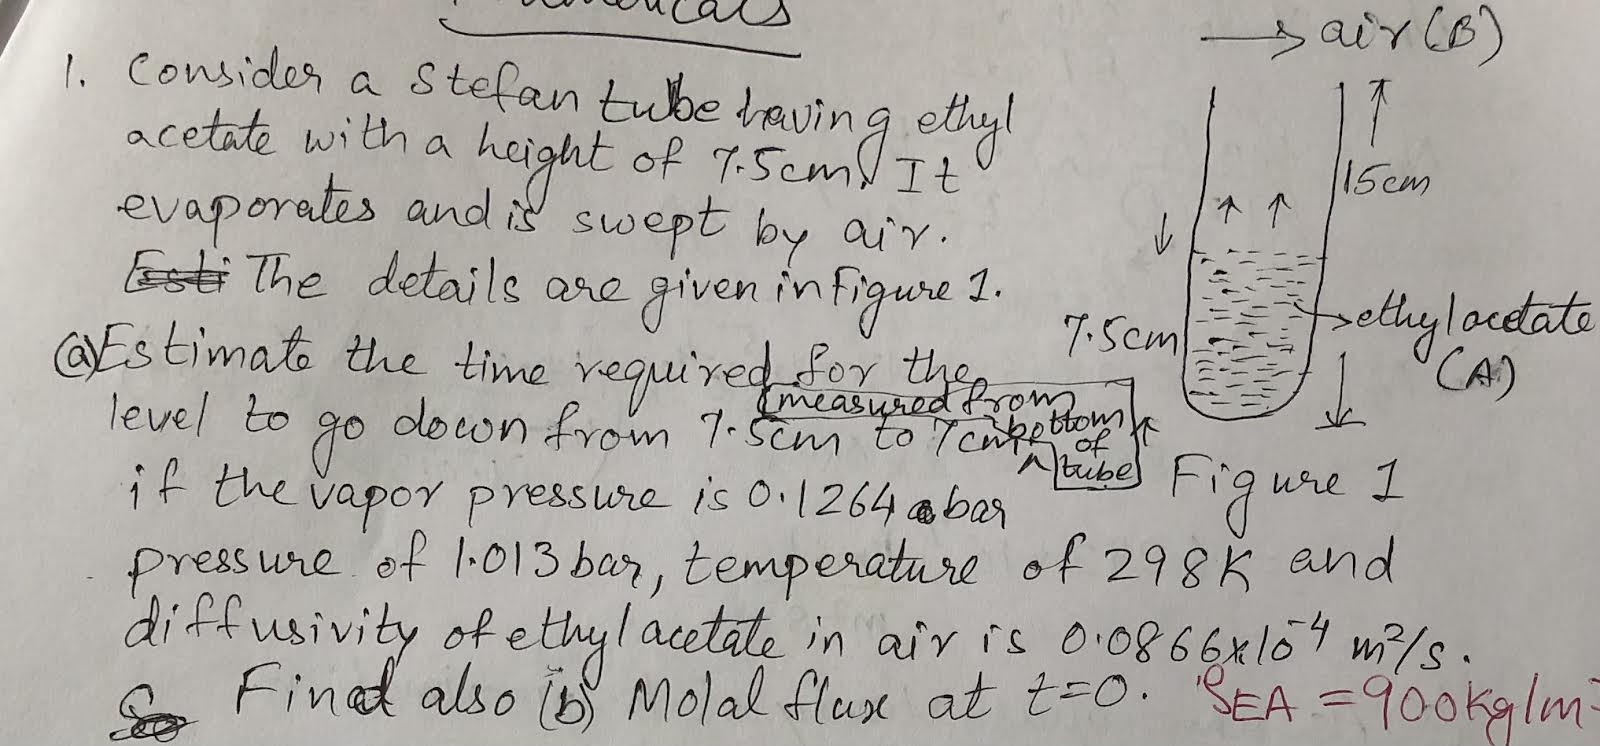 → air (B)
1. Consider a Stefan tube having ethyl
acetate with a height of 7.5cm. It
evaporates and is swept by air.
The details are given in Figure 1.
(a) Estimate the time required for the
level to go down from 7.5cm to 7cm (measured from bottom of tube)
if the vapor pressure is 0.1264 bar
pressure of 1.013 bar, temperature of 298K and
diffusivity of ethyl acetate in air is 0.0866x10^-4 m²/s.
Find also (b) Molal flux at t=0. ρEA = 900kg/m
15cm
7.5cm
ethyl acetate
(A)
Figure 1